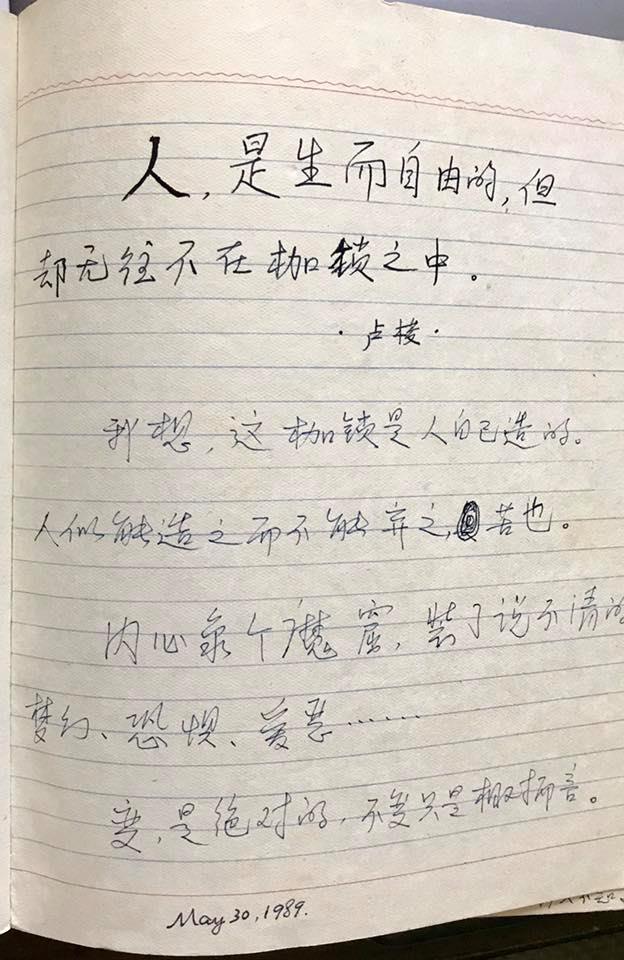 人，是生而自由的，但
却无往不在枷锁之中。
·卢梭·
我想，这枷锁是人自己造的。
人似能造之而不能弃之，苦也。
内心象个魔窟，装了说不清的
梦幻、恐惧、爱恶……
变，是绝对的，不变只是相对而言。
May 30, 1989.